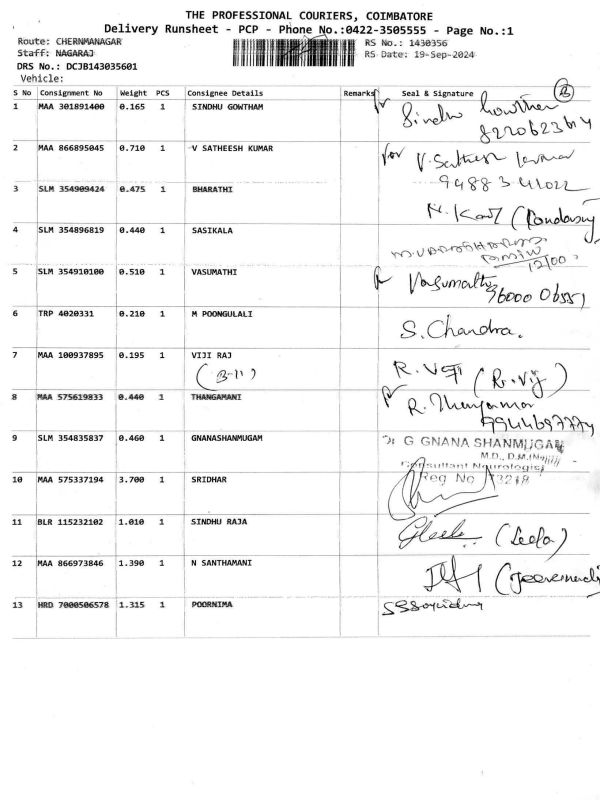 THE PROFESSIONAL COURIERS, COIMBATORE
Delivery Runsheet - PCP - Phone No.:0422-3505555 - Page No.:1
Route: CHERNMANAGAR RS No.: 1430356
Staff: NAGARAJ RS Date: 19-Sep-2024
DRS No.: DCJB143035601
Vehicle:
S No Consignment No Weight PCS Consignee Details Remarks Seal & Signature
1 MAA 301891400 0.165 1 SINDHU GOWTHAM Sindhu Gowtham
2 MAA 866895045 0.710 1 V SATHEESH KUMAR for V. Satheesh kumar
94883 41022
3 SLM 354909424 0.475 1 BHARATHI
4 SLM 354896819 0.440 1 SASIKALA
5 SLM 354910100 0.510 1 VASUMATHI Vasumathy
96000 06551
6 TRP 4020331 0.210 1 M POONGULALI S. Chandra.
7 MAA 100937895 0.195 1 VIJI RAJ
(B-11)
8 MAA 575619833 0.440 1 THANGAMANI
9 SLM 354835837 0.460 1 GNANASHANMUGAM G GNANA SHANMUGAM
M.D., D.M.
Consultant Neurologist
Reg No 73218
10 MAA 575337194 3.700 1 SRIDHAR
11 BLR 115232102 1.010 1 SINDHU RAJA (Leela)
12 MAA 866973846 1.390 1 N SANTHAMANI
13 HRD 7000506578 1.315 1 POORNIMA